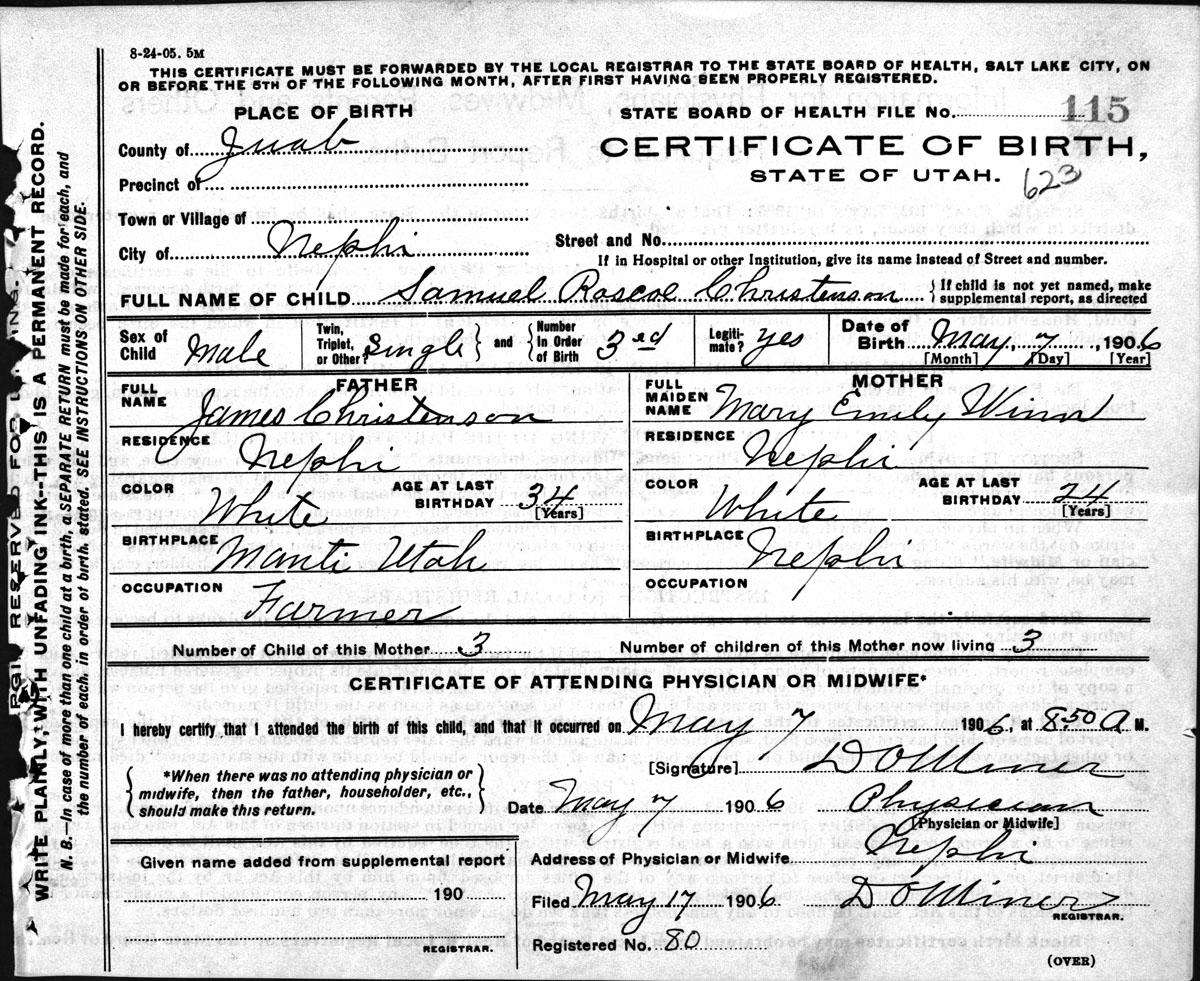 8-24-05. 5M
THIS CERTIFICATE MUST BE FORWARDED BY THE LOCAL REGISTRAR TO THE STATE BOARD OF HEALTH, SALT LAKE CITY, ON
OR BEFORE THE 5TH OF THE FOLLOWING MONTH, AFTER FIRST HAVING BEEN PROPERLY REGISTERED.
PLACE OF BIRTH
STATE BOARD OF HEALTH FILE No. 115
County of Juab
CERTIFICATE OF BIRTH,
STATE OF UTAH. 623
Precinct of
Town or Village of
City of Nephi
Street and No.
If in Hospital or other Institution, give its name instead of Street and number.
FULL NAME OF CHILD Samuel Roscoe Christenson { If child is not yet named, make supplemental report, as directed
Sex of Child Male Twin, Triplet, or Other? Single } and { Number In Order of Birth 3rd Legiti- mate? yes Date of Birth May, 7, 1906
[Month] [Day] [Year]
FATHER
FULL NAME James Christenson
RESIDENCE Nephi
COLOR White AGE AT LAST BIRTHDAY 34 [Years]
BIRTHPLACE Manti Utah
OCCUPATION Farmer
MOTHER
FULL MAIDEN NAME Mary Emily Winn
RESIDENCE Nephi
COLOR White AGE AT LAST BIRTHDAY 24 [Years]
BIRTHPLACE Nephi
OCCUPATION
Number of Child of this Mother 3 Number of children of this Mother now living 3
CERTIFICATE OF ATTENDING PHYSICIAN OR MIDWIFE*
I hereby certify that I attended the birth of this child, and that it occurred on May 7 1906, at 8:50 A M.
{ *When there was no attending physician or midwife, then the father, householder, etc., should make this return. }
[Signature] D O Miner
Date May 7 1906 Physician
[Physician or Midwife]
Given name added from supplemental report
190
REGISTRAR.
Address of Physician or Midwife Nephi
Filed May 17 1906 D O Miner
REGISTRAR.
Registered No. 80
(OVER)
WRITE PLAINLY, WITH UNFADING INK--THIS IS A PERMANENT RECORD.
N. B.—In case of more than one child at a birth, a SEPARATE RETURN must be made for each, and
the number of each, in order of birth, stated. SEE INSTRUCTIONS ON OTHER SIDE.